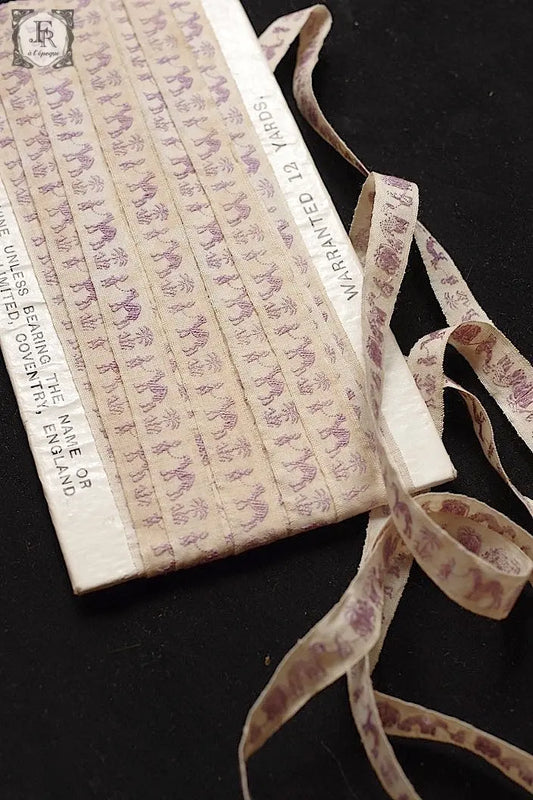 FR
à l'époque
WARRANTED 12 YARDS,
UNLESS BEARING THE NAME OR
LIMITED, COVENTRY, ENGLAND